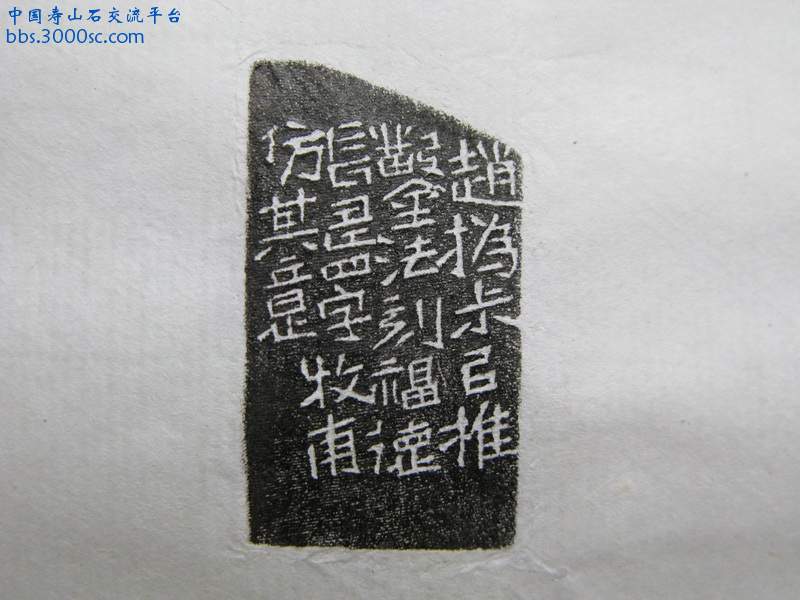 中国寿山石交流平台
bbs.3000sc.com
趙撝尗㠯推
鑿法刻福德
長四字牧甫
仿其意